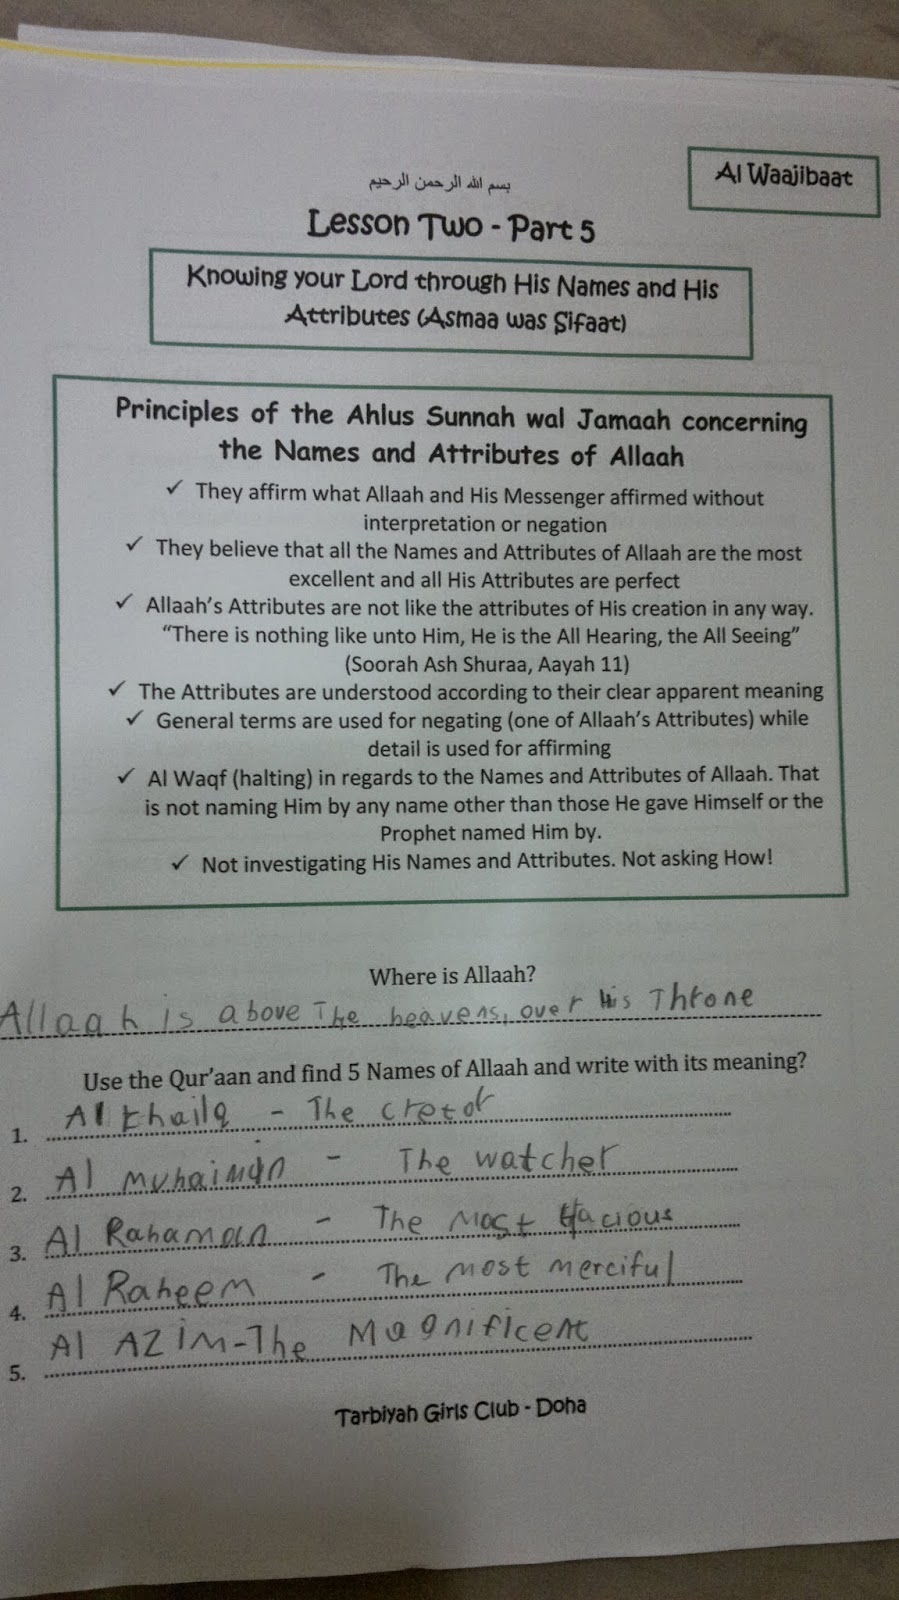 Al Waajibaat
بسم الله الرحمن الرحيم
Lesson Two - Part 5
Knowing your Lord through His Names and His
Attributes (Asmaa was Sifaat)
Principles of the Ahlus Sunnah wal Jamaah concerning
the Names and Attributes of Allaah
✓ They affirm what Allaah and His Messenger affirmed without
interpretation or negation
✓ They believe that all the Names and Attributes of Allaah are the most
excellent and all His Attributes are perfect
✓ Allaah's Attributes are not like the attributes of His creation in any way.
“There is nothing like unto Him, He is the All Hearing, the All Seeing”
(Soorah Ash Shuraa, Aayah 11)
✓ The Attributes are understood according to their clear apparent meaning
✓ General terms are used for negating (one of Allaah's Attributes) while
detail is used for affirming
✓ Al Waqf (halting) in regards to the Names and Attributes of Allaah. That
is not naming Him by any name other than those He gave Himself or the
Prophet named Him by.
✓ Not investigating His Names and Attributes. Not asking How!
Where is Allaah?
Allaah is above The heavens, over His Throne
Use the Qur'aan and find 5 Names of Allaah and write with its meaning?
1. Al khailq - The cretor
2. Al muhaiman - The watcher
3. Al Rahaman - The Most Gracious
4. Al Raheem - The most merciful
5. Al AZiM-The Magnificent
Tarbiyah Girls Club - Doha